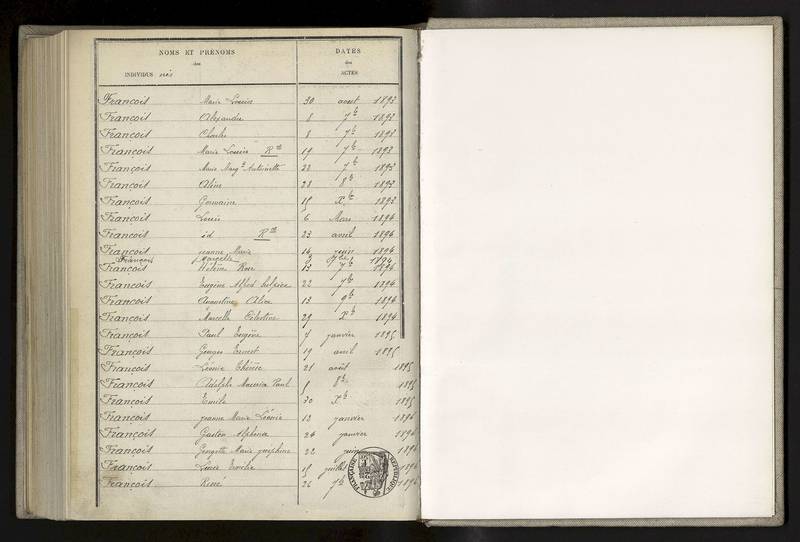 NOMS ET PRÉNOMS DATES
des des
INDIVIDUS nés ACTES
François Marie Louise 30 aout 1893
François Alexandre 8 7b 1893
François Charles 8 7b 1893
François Marie Louise Rte 19 7b 1893
François Marie Margte Antoinette 22 7b 1893
François Aline 28 8b 1893
François Germaine 15 Xb 1893
François Louis 6 Mars 1894
François id Rte 23 avril 1894
François jeanne Marie 14 juin 1894
François 9 7bre 1894
François Hélène Rose 13 7b 1894
François Eugène Alfred Sulpice 22 7b 1894
François Augustine Alice 13 9b 1894
François Marcelle Célestine 29 Xb 1894
François Paul Eugène 7 janvier 1895
François Georges Ernest 19 avril 1895
François Léonie Thérèse 21 août 1895
François Adolphe Maurice Paul 8 8b 1895
François Emile 30 Xb 1895
François jeanne Marie Léonie 12 janvier 1896
François Gaston Alphonse 24 janvier 1896
François Georgette Marie joséphine 22 juin 1896
François Lucie Emélie 15 juillet 1896
François René 26 7b 1896
RÉPUBLIQUE FRANÇAISE